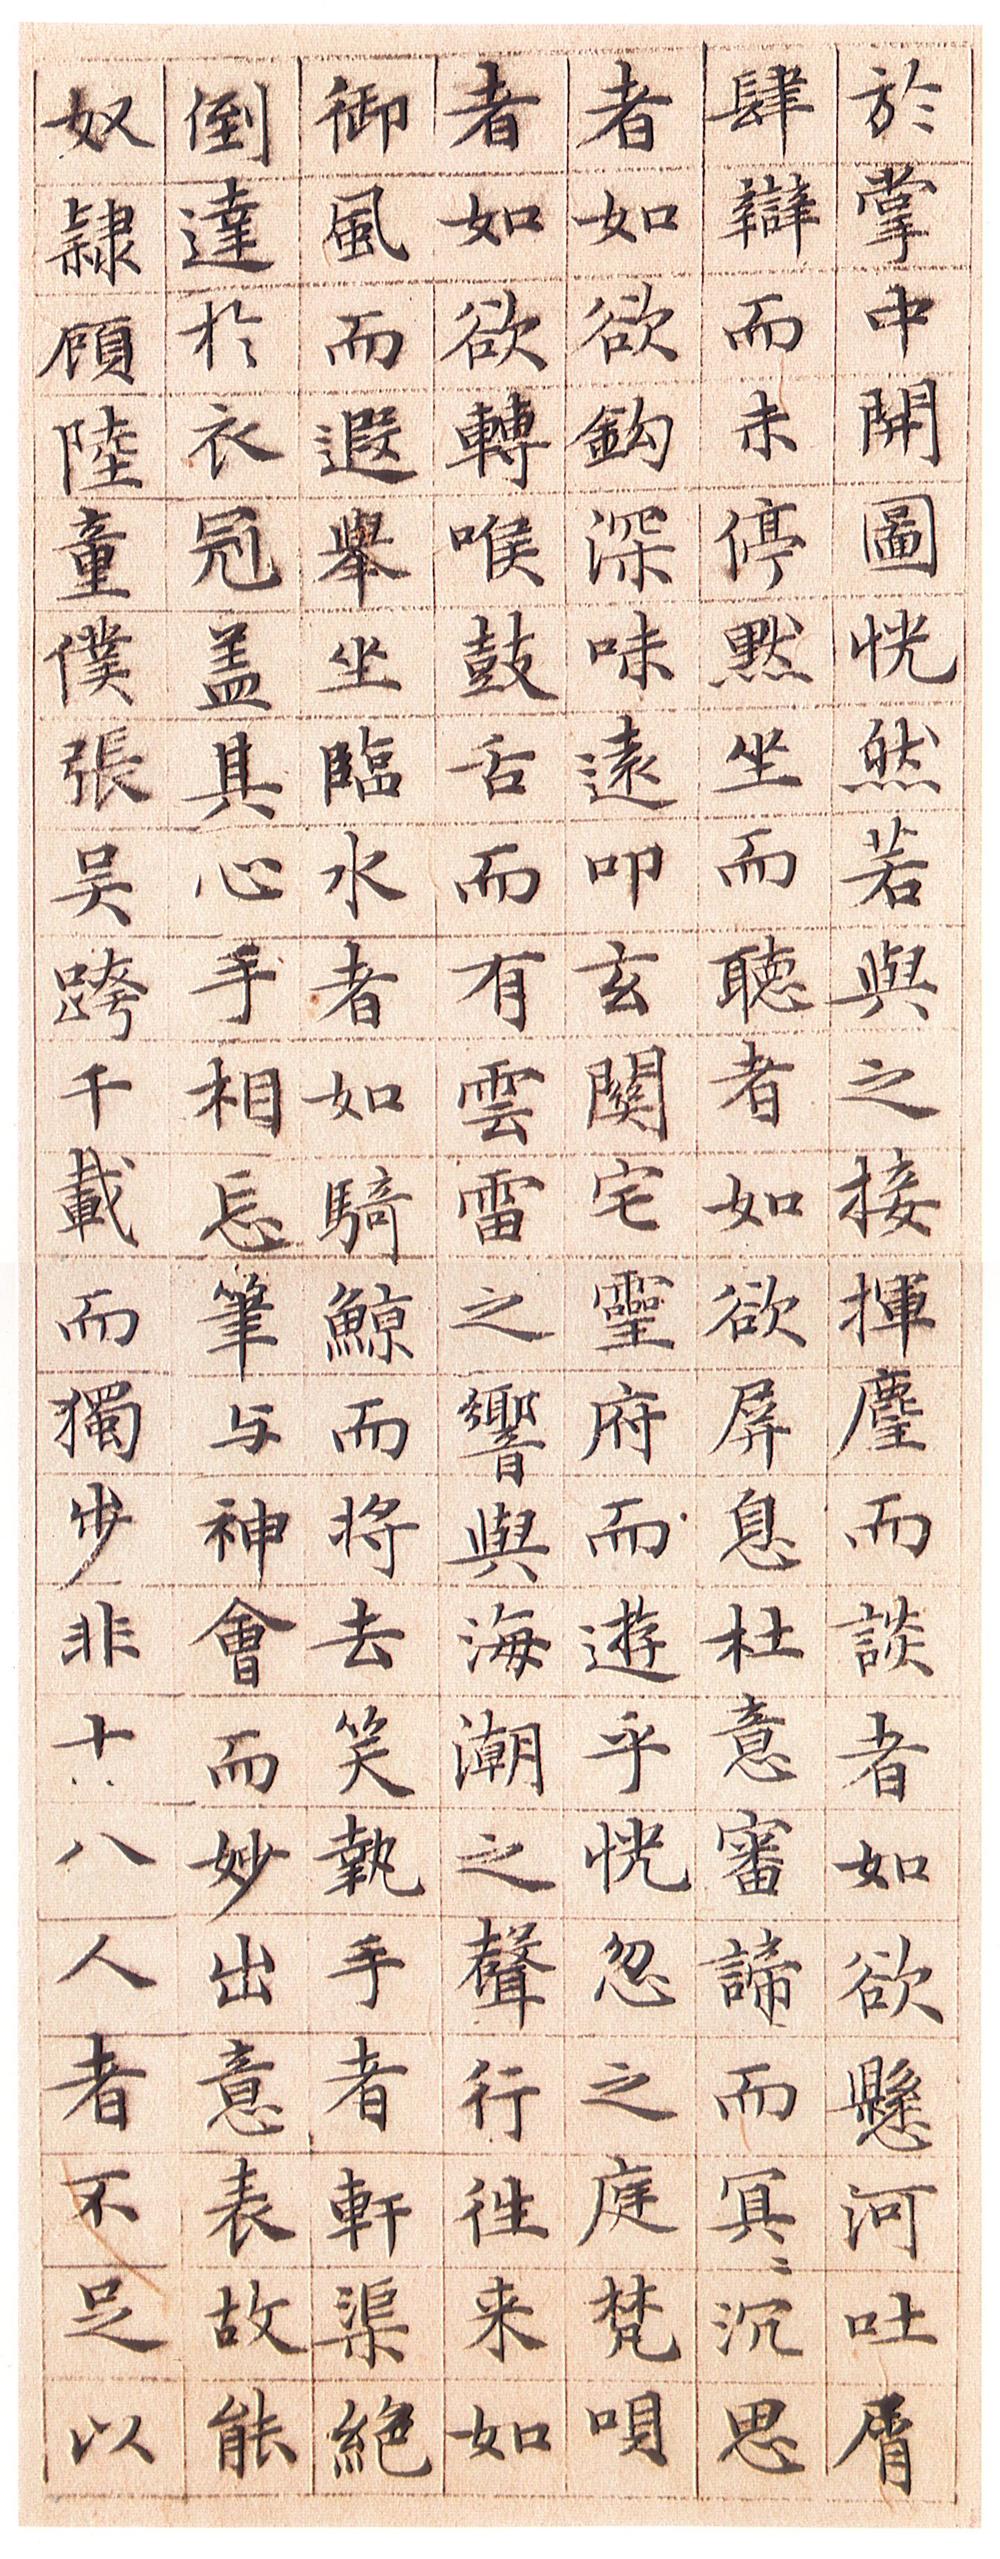 於掌中開圖恍然若與之接揮麈而談者如欲懸河吐屑
肆辯而未停默坐而聽者如欲屏息杜意審諦而冥〻沉思
者如欲鈎深味遠叩玄關宅靈府而遊乎恍忽之庭梵唄
者如欲轉喉鼓舌而有雲雷之響與海潮之聲行徃来如
御風而遐舉坐臨水者如騎鯨而將去笑執手者軒渠絕
倒達於衣冠盖其心手相忘筆与神會而妙出意表故能
奴隸顧陸童僕張吴跨千載而獨步非十八人者不足以